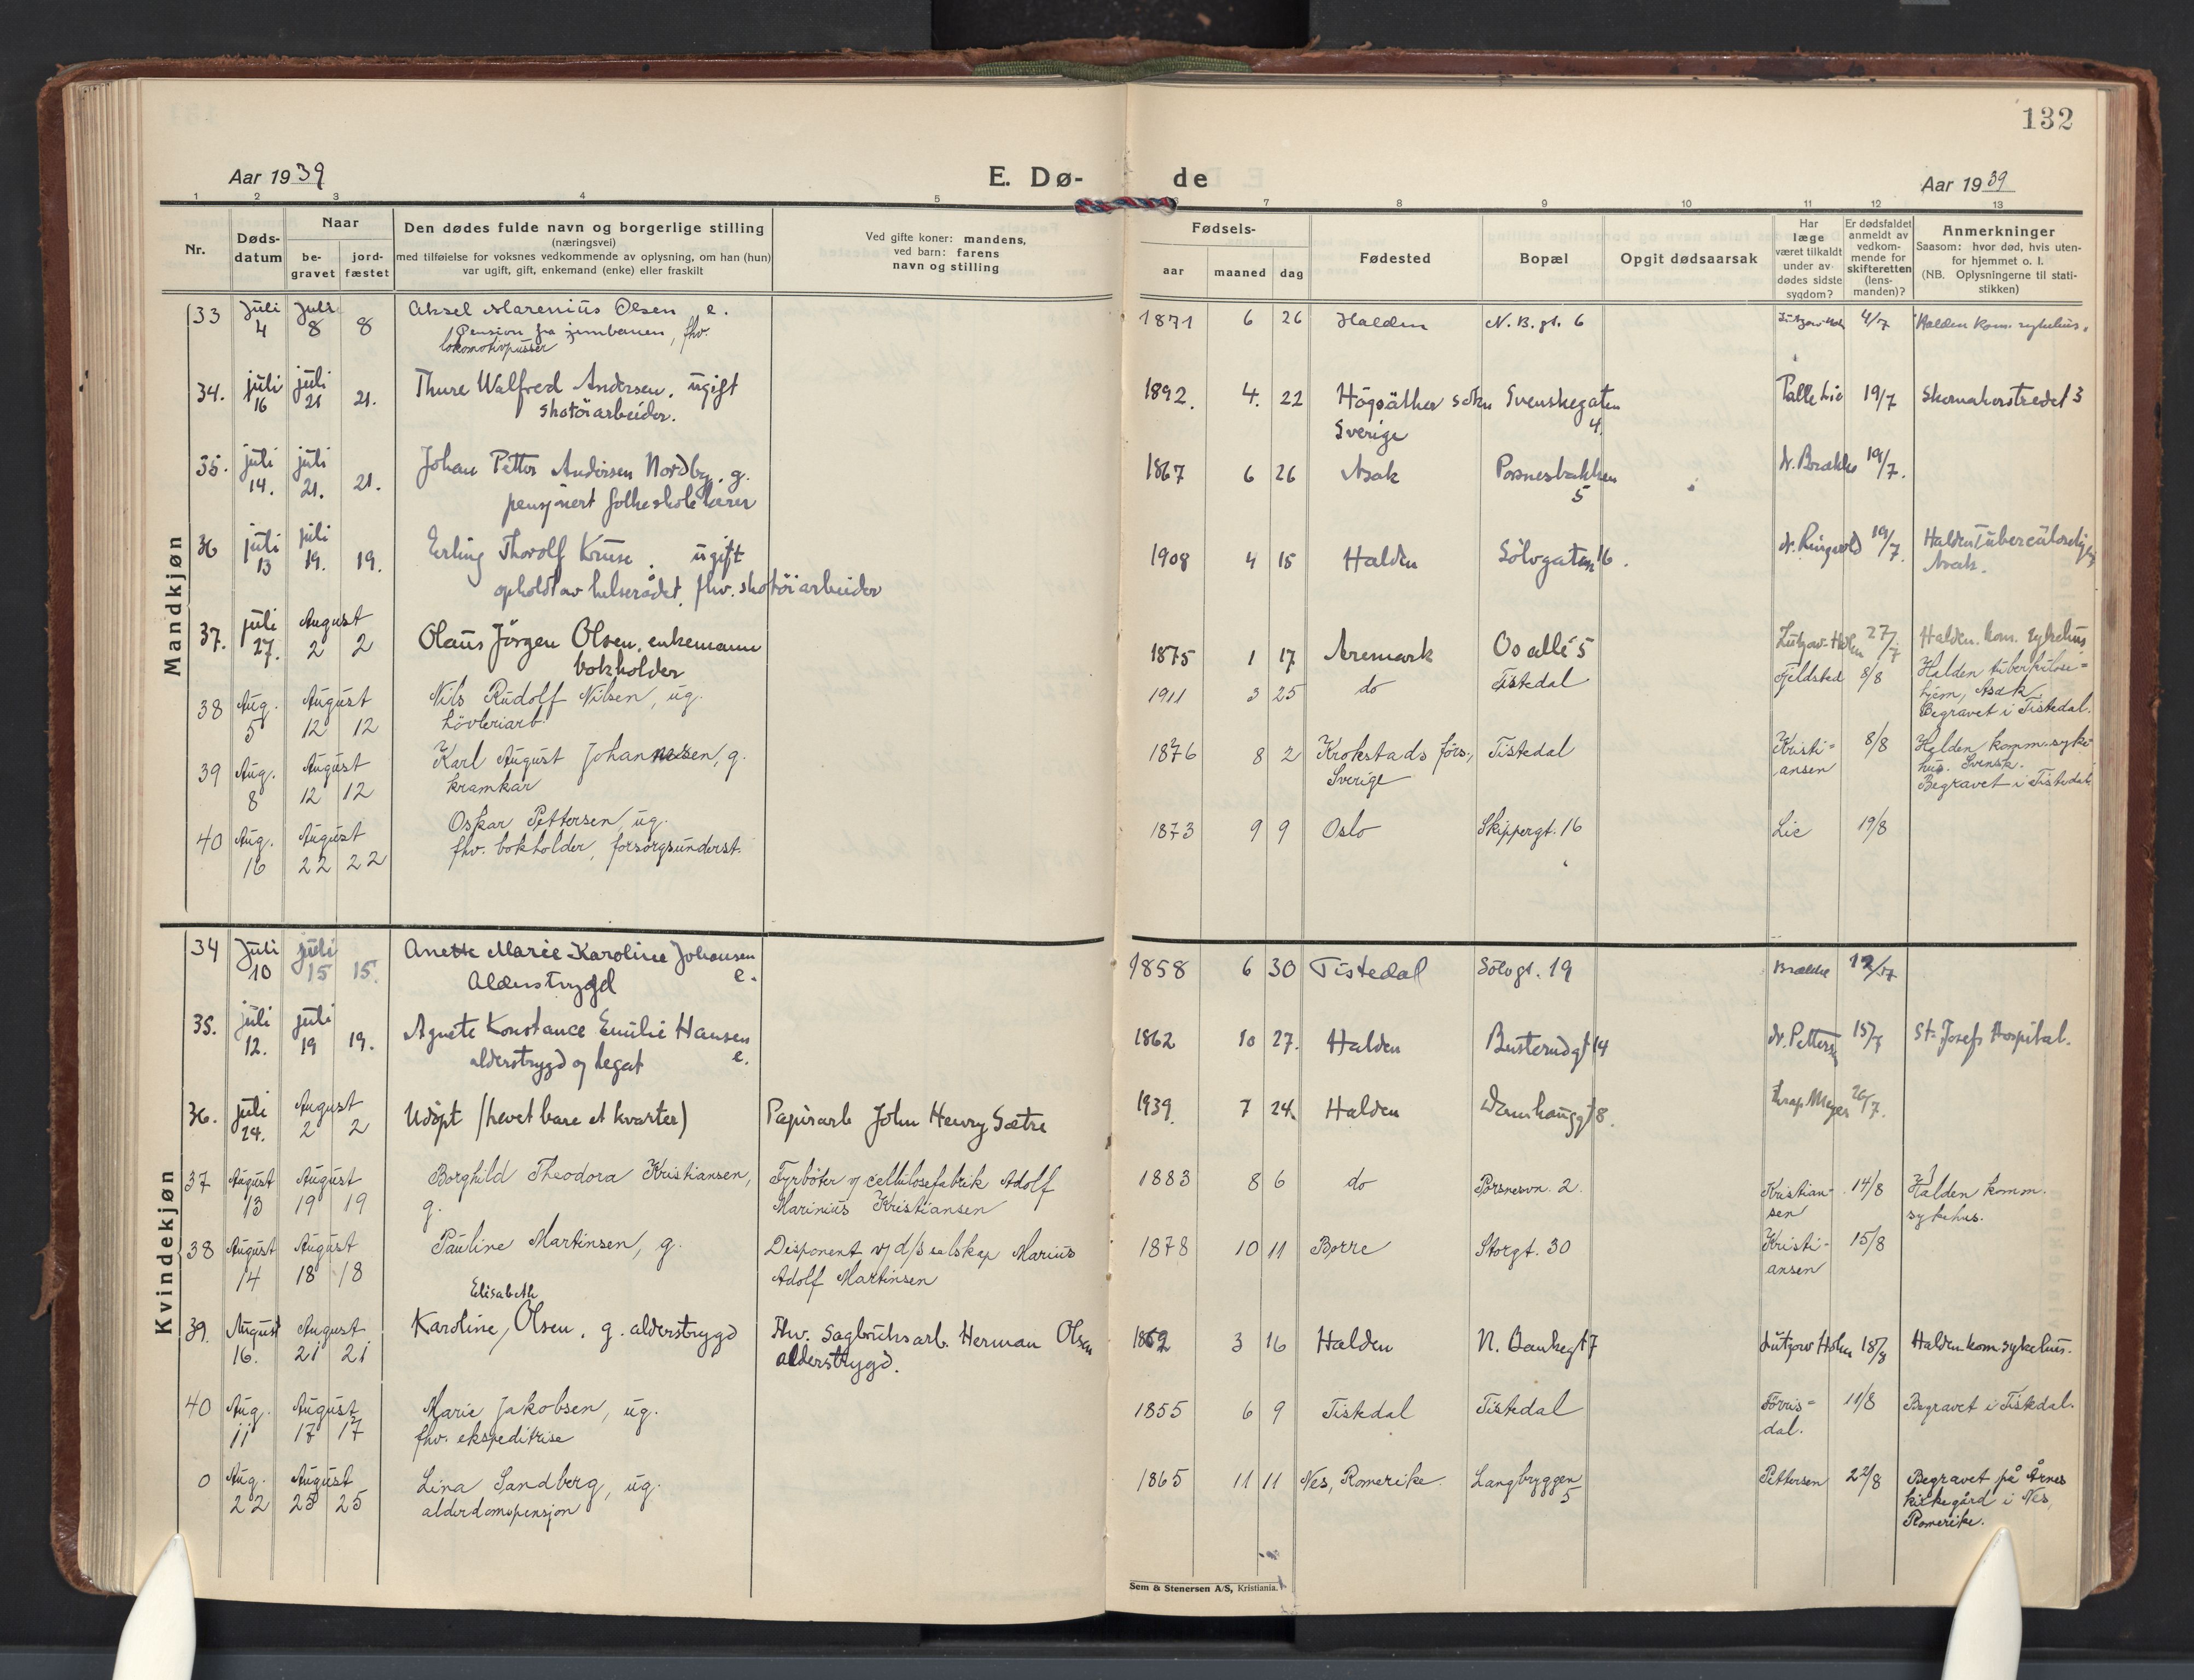 132
Aar 1939
E. Dø-
de
Aar 1939
1 2 3 4 5 7 8 9 10 11 12 13
Nr.
Døds-
datum
Naar
be-
gravet
jord-
fæstet
Den dødes fulde navn og borgerlige stilling
(næringsvei)
med tilføielse for voksnes vedkommende av oplysning, om han (hun)
var ugift, gift, enkemand (enke) eller fraskilt
Ved gifte koner: mandens,
ved barn: farens
navn og stilling
Fødsels-
aar maaned dag
Fødested
Bopæl
Opgit dødsaarsak
Har
læge
været tilkaldt
under av-
dødes sidste
sygdom?
Er dødsfaldet
anmeldt av
vedkom-
mende for
skifteretten
(lens-
manden)?
Anmerkninger
Saasom: hvor død, hvis uten-
for hjemmet o. l.
(NB. Oplysningerne til stati-
stikken)
Mandkjøn
33 Juli 4 Juli 8 8 Aksel Marenius Olsen e. 1871 6 26 Halden N. B. gt. 6 4/7 Halden kom. sykehus.
Pension fra jernbanen, fhv.
lokomotivpusser
34. juli 16 juli 21 21. Thure Walfred Andersen, ugift 1892. 4. 22 Högsäther sokn Svenskegaten Palle Lie 19/7 Skomakerstredet 3
skotöiarbeider. Sverige 4.
35. juli 14. juli 21. 21. Johan Petter Andersen Nordby, g. 1867 6 26 Asak Posnesbakken dr. Brække 19/7.
pensjonert folkeskolelærer 5
36 juli 13 juli 19. 19. Erling Thorolf Kruse. ugift 1908 4 15 Halden Sölvgaten 16. dr. Ringvold 19/7. Halden Tuberculosehjem
opholdt av helserådet, fhv. skotöiarbeider Asak.
37. juli 27. August 2 2 Olaus Jörgen Olsen, enkemann 1875 1 17 Aremark Os allé 5 Lützow-Holm 27/7 Halden. kom. sykehus
bokholder
38 Aug. 5 August 12 12 Nils Rudolf Nilsen, ug. 1911 3 25 do Tistedal Fjeldstad 8/8 Halden tuberkulose-
hövleriarb. hjem, Asak.
Begravet i Tistedal.
39 Aug. 8 August 12 12 Karl August Johannessen, g. 1876 8 2 Krokstads förs., Tistedal Kristi- 8/8 Halden komm. syke-
kramkar Sverige ansen hus. Svensk.
Begravet i Tistedal.
40 Aug. 16 August 22 22 Oskar Pettersen, ug. 1873 9 9 Oslo Skippergt. 16 Lie 19/8
fhv. bokholder, forsorgsunderst.
Kvindekjøn
34 Juli 10 juli 15 15. Anette Marie Karoline Johansen 1858 6 30 Tistedal Sölvgt. 19 Brække 12/7
Alderstrygd e.
35. juli 12. juli 19 19. Agnete Konstance Emilie Hansen 1862 10 27. Halden Busterudgt 14 dr. Pettersen 15/7 St. Josefs Hospital.
alderstrygd og legat e.
36. juli 24. August 2 2 Udöpt (levet bare et kvarter) Papirarb John Henry Sætre 1939. 7 24. Halden Damhauggt 8. Thrap Meyer 26/7.
37 August 13 August 19 19 Borghild Theodora Kristiansen, Fyrböter v/ cellulosefabrik Adolf 1883 8 6 do Porsnesvn. 2. Kristian- 14/8 Halden komm.
g. Marinius Kristiansen sen sykehus.
38 August 14 August 18 18 Pauline Martinsen, g. Disponent v/ d/s selskap Marius 1878 10 11 Borre Storgt. 30 Kristi- 15/8
Adolf Martinsen ansen
Elisabeth
39. August 16. August 21 21 Karoline, Olsen, g. alderstrygd Fhv. sagbruksarb. Herman Olsen 1862 3 16 Halden N. Bankegt 7 Lützow Holm 18/8 Halden kom. sykehus.
alderstrygd.
40 Aug. 11 August 17 17 Marie Jakobsen, ug. 1855 6 9 Tistedal Tistedal Förris- 11/8 Begravet i Tistedal.
fhv. ekspeditrise dal.
0 Aug. 22 August 25 25 Lina Sandberg, ug. 1865 11 11 Nes, Romerike Langbryggen Pettersen 22/8 Begravet på Årnes
alderdomspensjon 5 kirkegård i Nes,
Romerike.
Sem & Stenersen A/S, Kristiania.